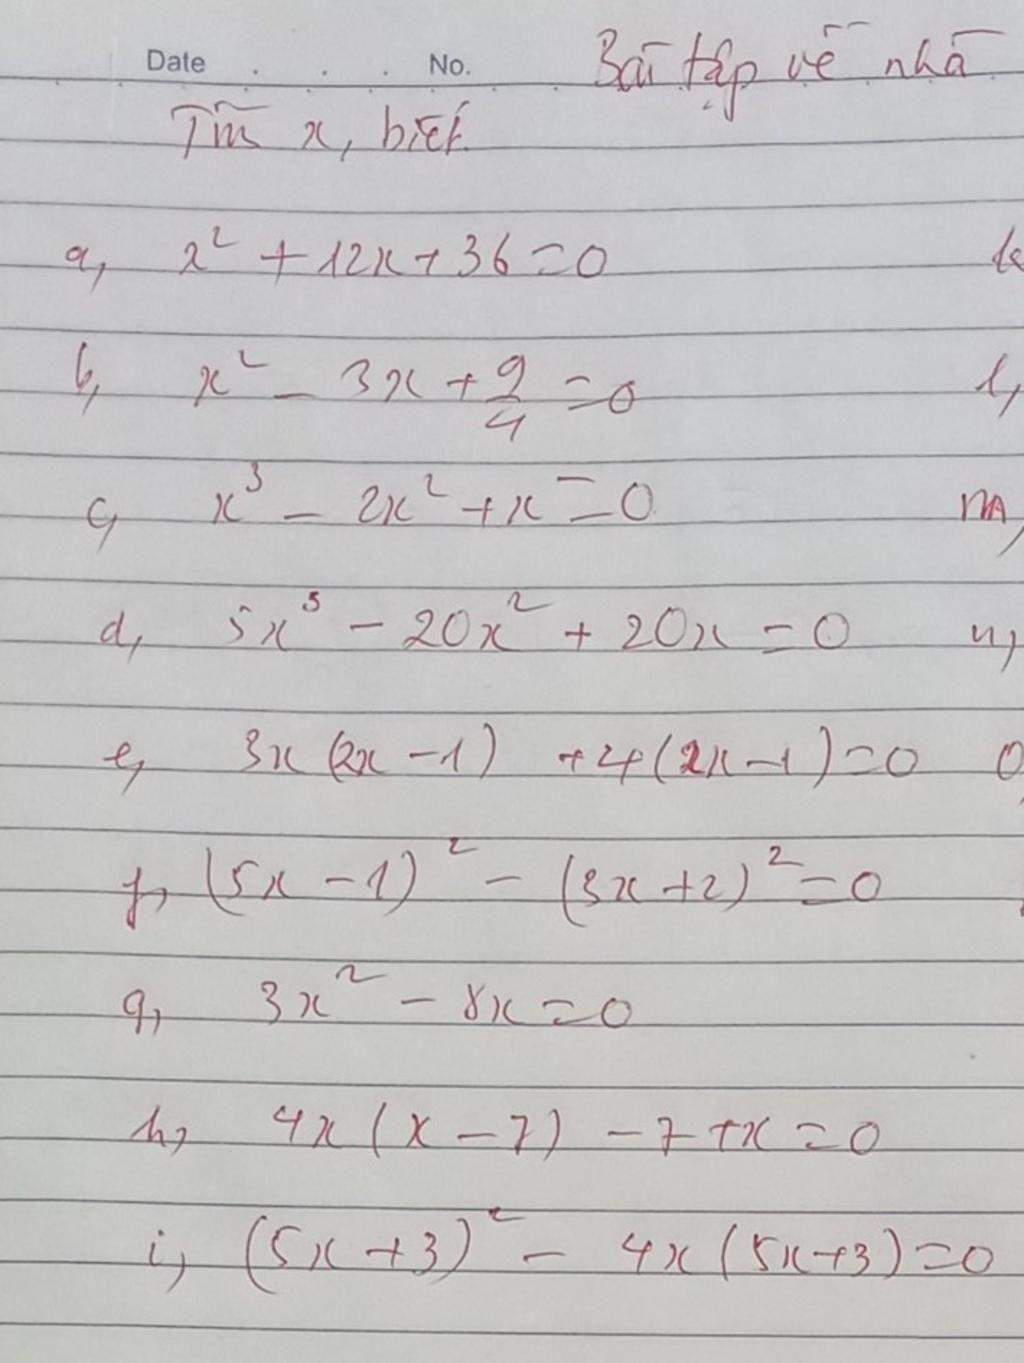 Date . . . No. Bài tập về nhà
Tìm x, biết
a, x² + 12x + 36 = 0
b, x² - 3x + 9/4 = 0 l,
c, x³ - 2x² + x = 0 m,
d, 5x³ - 20x² + 20x = 0 n,
e, 3x (2x - 1) + 4 (2x - 1) = 0
f, (5x - 1)² - (3x + 2)² = 0
g, 3x² - 8x = 0
h, 4x (x - 7) - 7 + x = 0
i, (5x + 3)² - 4x (5x + 3) = 0